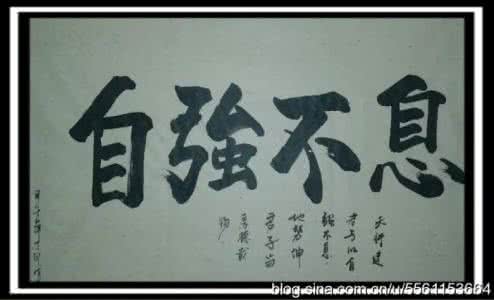 自強不息
天行建
君子以自
强不息
地势坤
君子
厚德载
物
blog.sina.com.cn/u/5561153664